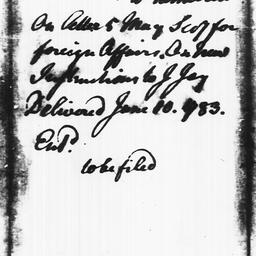 On Letter 5 May Secy for
foreign Affairs. On new
Instructions to J Jay
Delivered June 10. 1783.
Entd.
to be filed